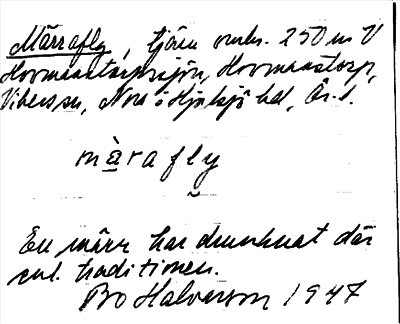 Märrafly, tjärn omkr. 250 m V
Hovmanstorpssjön, Hovmanstorp,
Vikers sn, Nora o Hjulsjö hd, Ör. l.
màrafly
En märr har drunknat där
enl. traditionen.
Bo Halvarson 1947